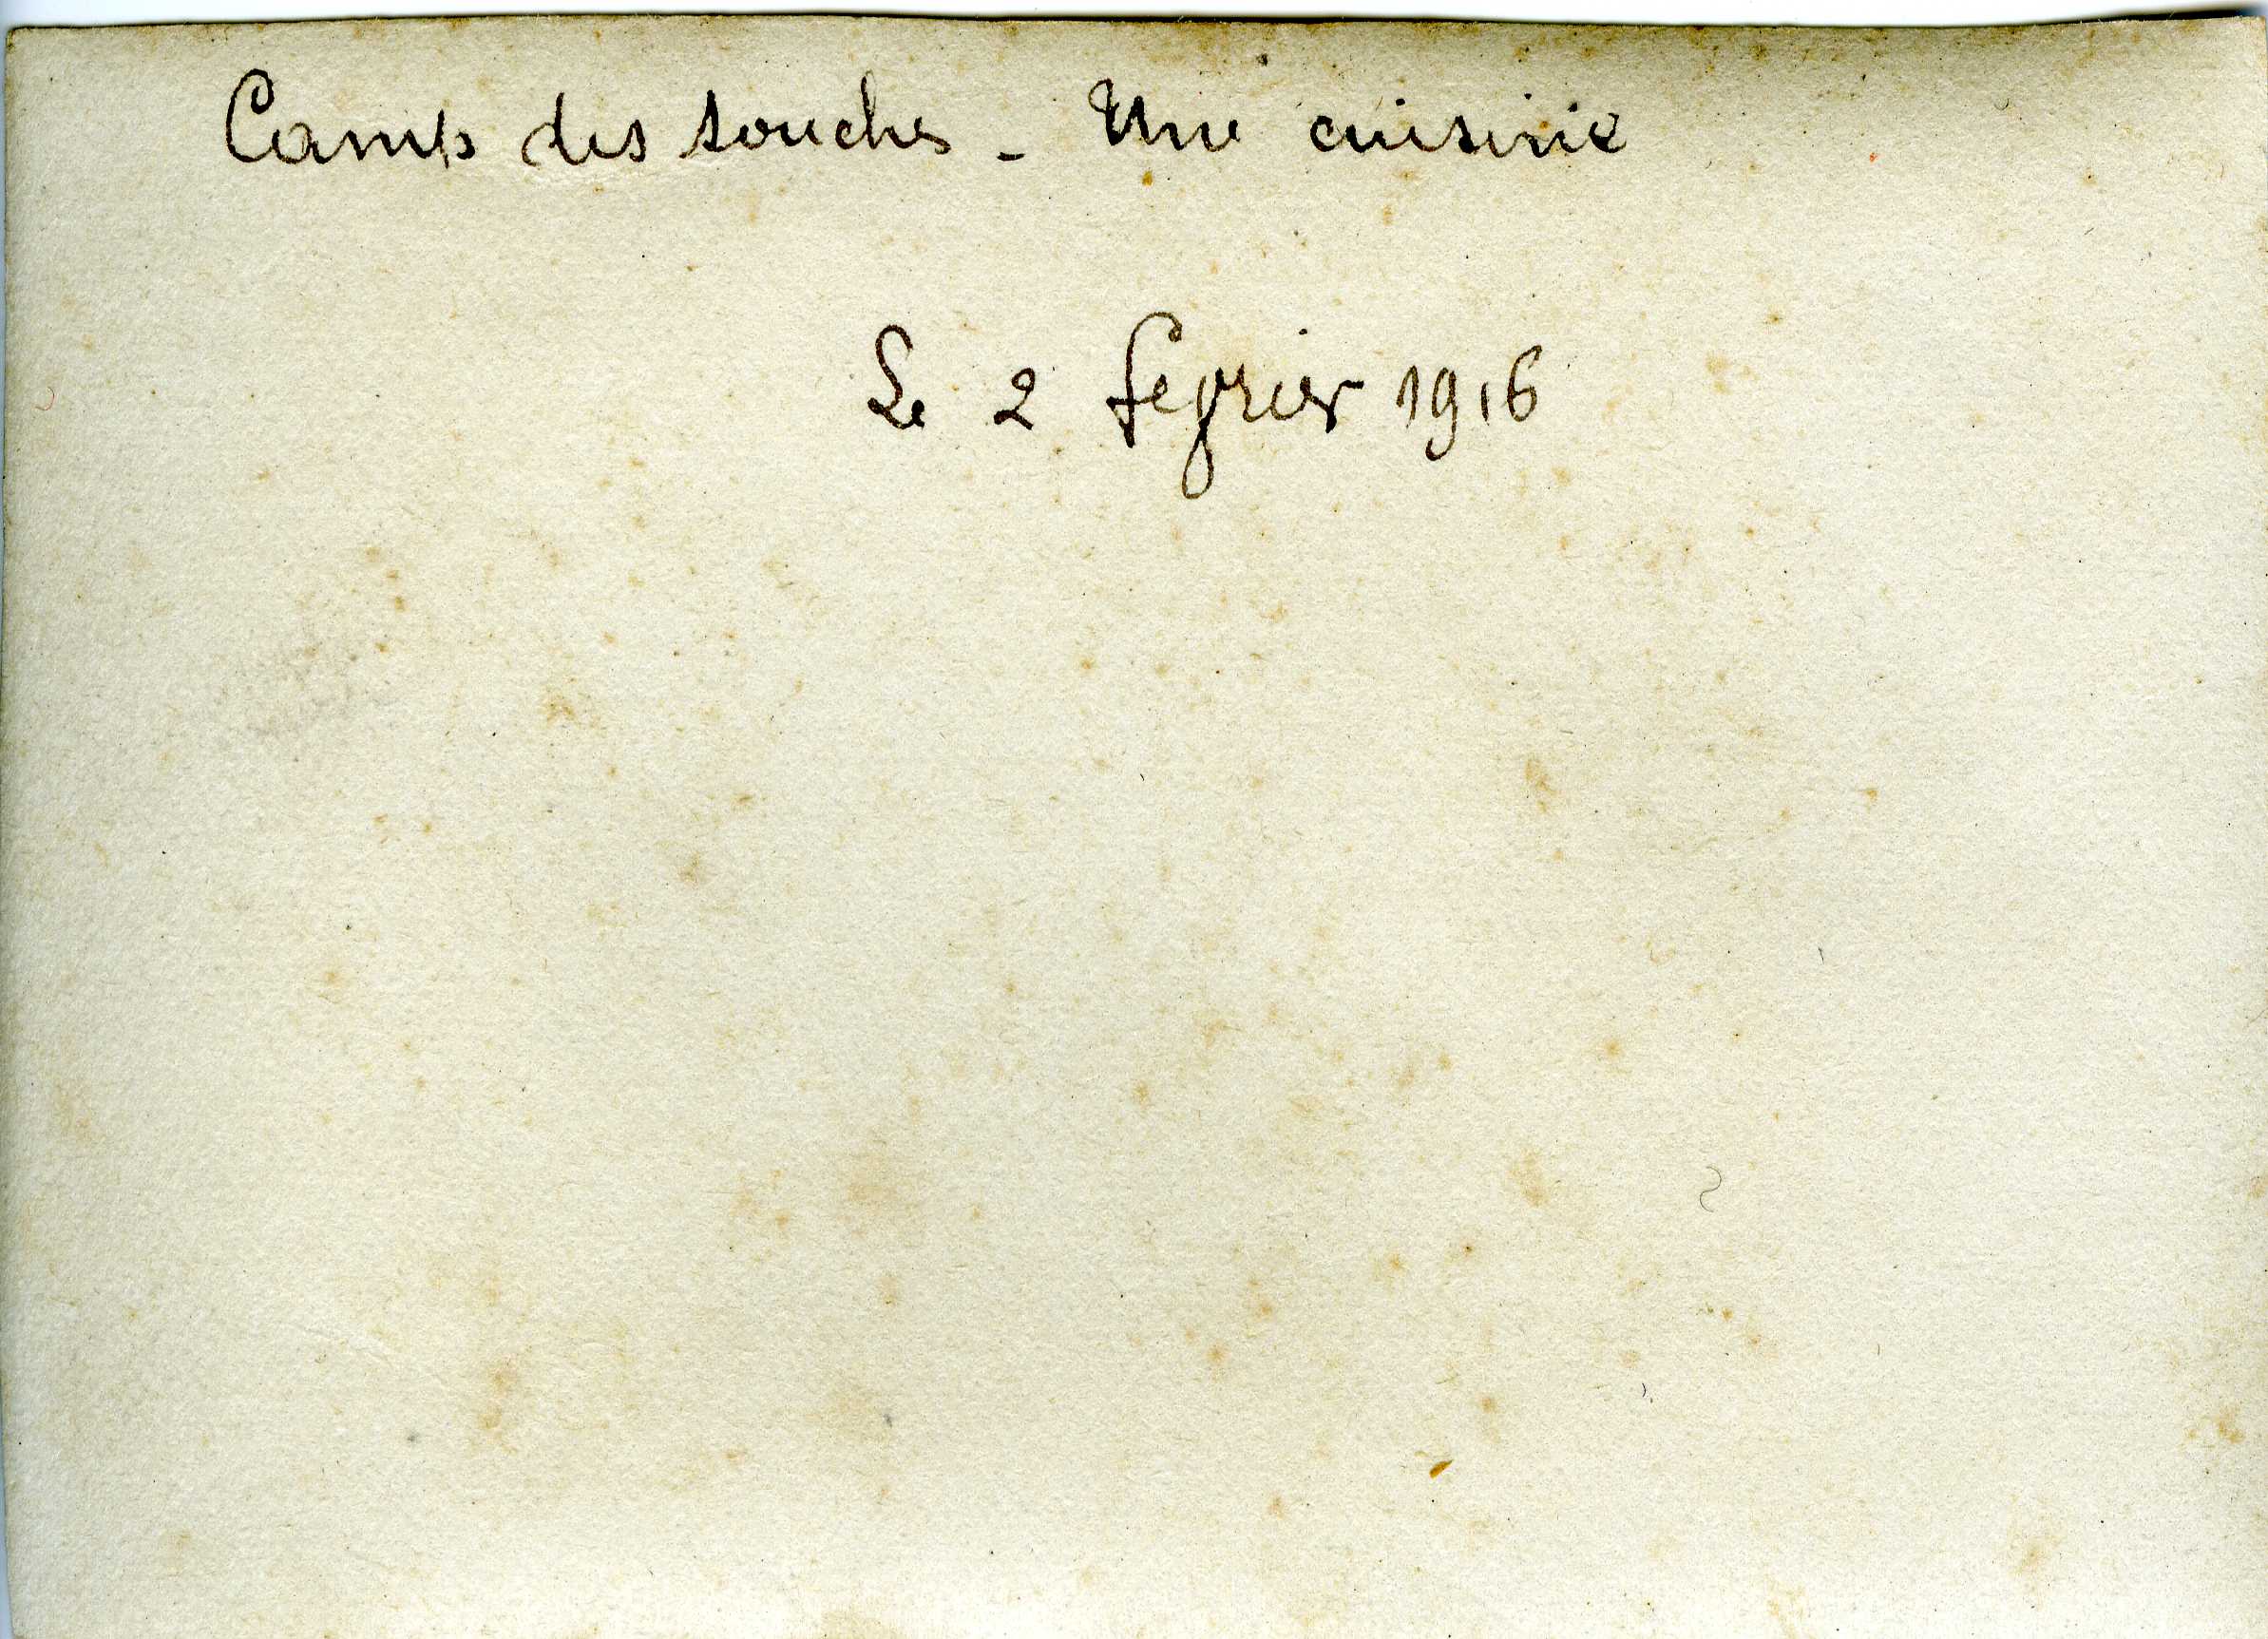 Camp des souches - Une cuisine
Le 2 fevrier 1916